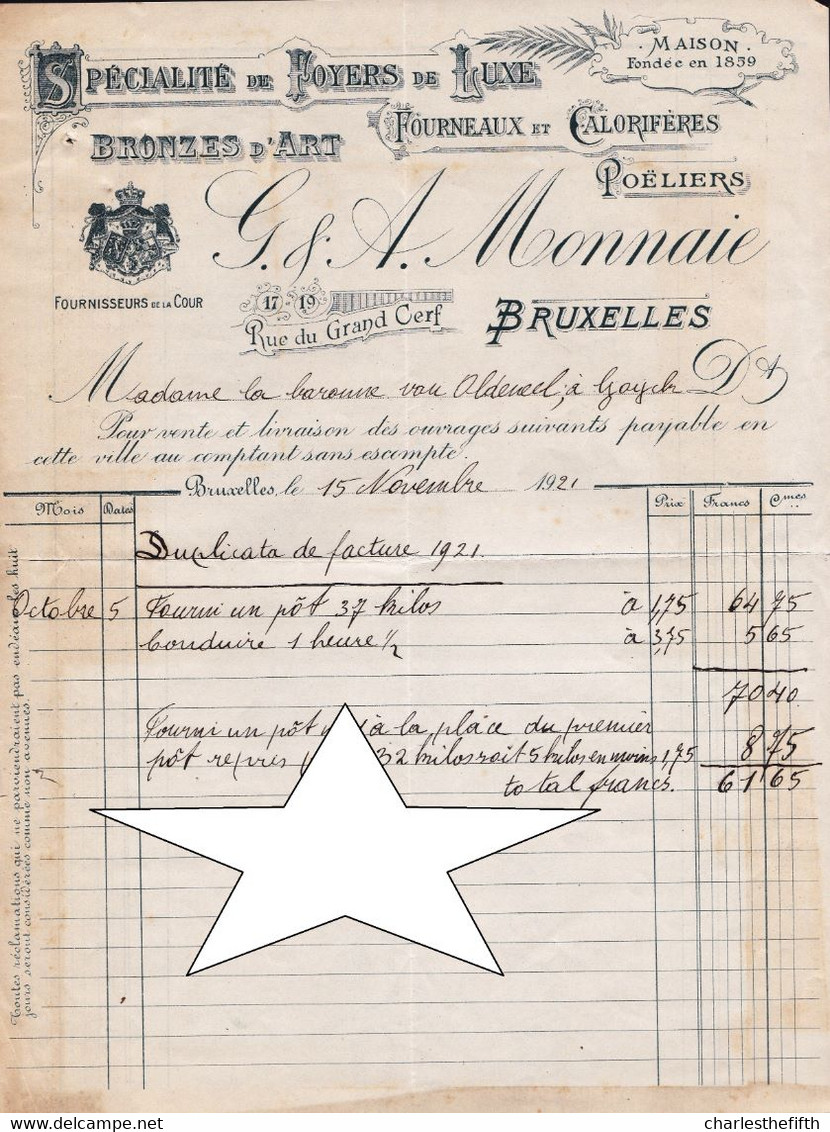 MAISON
Fondée en 1859
SPÉCIALITÉ DE FOYERS DE LUXE
BRONZES D'ART
FOURNEAUX ET CALORIFÈRES
POËLIERS
G. & A. Monnaie
FOURNISSEURS DE LA COUR
17 19
Rue du Grand Cerf
BRUXELLES
Madame la baronne van Oldeneel, à Dt
Pour vente et livraison des ouvrages suivants payable en
cette ville au comptant sans escompte.
Bruxelles, le 15 Novembre 1921
Mois Dates Prix Francs Cmes
Duplicata de facture 1921.
Octobre 5 Fourni un pôt 37 kilos à 1,75 64 75
Conduire 1 heure 1/2 à 3,75 5 65
70 40
Fourni un pôt à la place du premier
pôt repris 32 kilos soit 5 kilos en moins 1,75 8 75
total francs. 61 65
Toutes réclamations qui ne parviendraient pas endéans les huit
jours seront considérées comme non avenues.
charlesthefifth